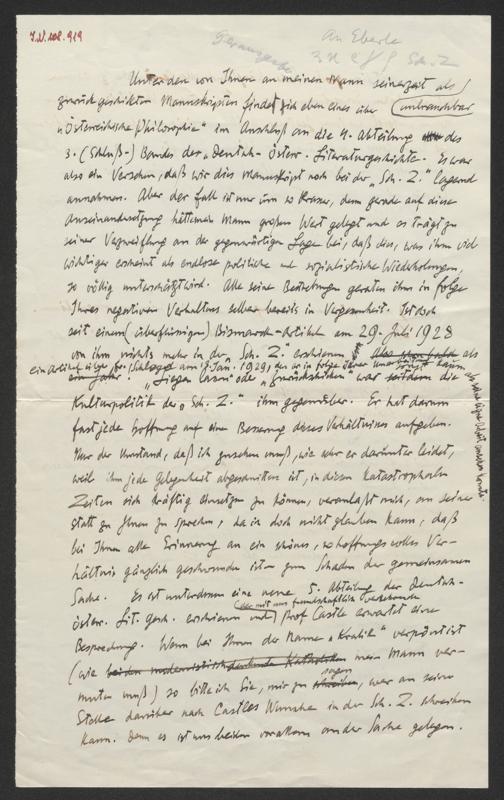 I.N. 108.919
An Eberle
Sch. Z
Unter den von Ihnen an meinen Mann seinerzeit als
zurückgeschickten Manuskripten findet sich eben eines über (unbrauchbar
„Österreichische Philosophie" im Anschluß an die 4. Abteilung des
3. (Schluß-) Bandes der „Deutsch-Österr. Literaturgeschichte. Es war
also ein Versehen, daß wir dies Manuskript noch bei der „Sch. Z." lagernd
annahmen. Aber der Fall ist nur um so krasser, denn gerade auf diese
Auseinandersetzung hätte mein Mann großen Wert gelegt und es trägt zu
seiner Verzweiflung an der gegenwärtigen Lage bei, daß das, was ihm viel
wichtiger erscheint als endlose politische und sozialistische Wiederholungen,
so völlig unterschätzt wird. Alle seine Beziehungen geraten ihm in Folge
Ihres negativen Verhaltens selber bereits in Vergessenheit. Ist doch
seit einem (überflüssigen) Bismarck-Artikel am 29. Juli 1928
von ihm nichts mehr in der „Sch. Z." erschienen
ein Artikel über Fr. Schlegel am 1. Jan. 1929,
„Liegen lassen" oder „Zurückschicken" war die
Kulturpolitik der „Sch. Z." ihm gegenüber. Er hat darum
fast jede Hoffnung auf eine Besserung dieses Verhältnisses aufgeben.
Nur der Umstand, daß ich zusehen muß, wie sehr er darunter leidet,
weil ihm jede Gelegenheit abgeschnitten ist, in diesen katastrophalen
Zeiten sich kräftig einsetzen zu können, veranlaßt mich, an seiner
statt zu Ihnen zu sprechen, da ich doch nicht glauben kann, daß
bei Ihnen alle Erinnerung an ein schönes, so hoffnungsvolles Ver-
hältnis gänzlich geschwunden ist zum Schaden der gemeinsamen
Sache. Es ist unterdessen eine neue 5. Abteilung der Deutsch-
österr. Lit. gesch. erschienen und (der mit uns freundschaftlich verbundene) Prof Castle erwartet eine
Besprechung. Wenn bei Ihnen der Name „Kralik" verpönt ist
(wie mein Mann ver-
muten muß) so bitte ich Sie, mir zu sagen, wer an seine
Stelle darüber nach Castles Wunsche in der Sch. Z. schreiben
kann. Denn es ist uns beiden vor allem an der Sache gelegen.